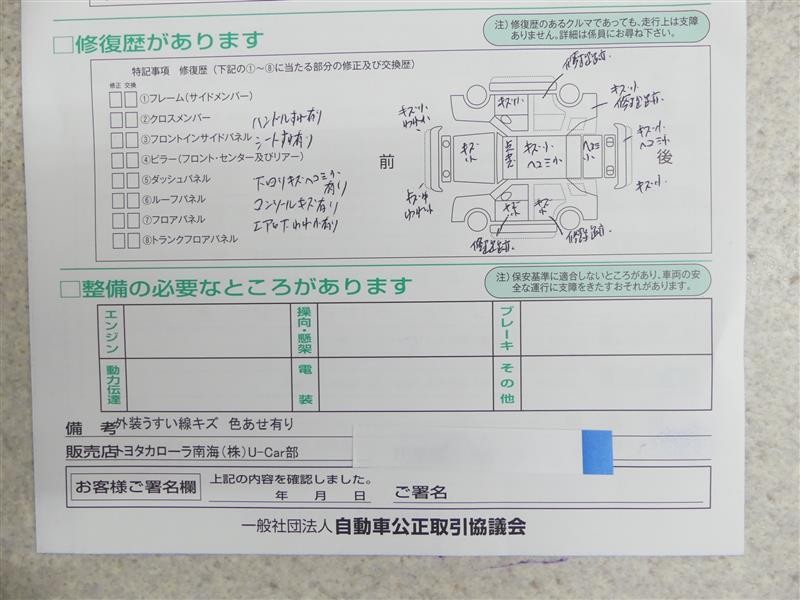 注）修復歴のあるクルマであっても、走行上は支障
ありません。詳細は係員にお尋ね下さい。
□修復歴があります
特記事項 修復歴（下記の①～⑧に当たる部分の修正及び交換歴）
修正 交換
①フレーム（サイドメンバー）
②クロスメンバー
ハンドルすれ有り
③フロントインサイドパネル
シートすれ有り
④ピラー（フロント・センター及びリアー）
⑤ダッシュパネル
下回りキズヘコミ小
有り
⑥ルーフパネル
コンソールキズ有り
⑦フロアパネル
エアロ下われ有り
⑧トランクフロアパネル
前
後
修理跡
キズ小
キズ小
修理跡
キズ小
われ小
キズ小
ヘコミ小
キズ
小
キズ小
ヘコミ小
ヘコミ
小
キズ小
われ小
キズ小
キズ
小
キズ
小
修理跡
修理跡
□整備の必要なところがあります
注）保安基準に適合しないところがあり、車両の安
全な運行に支障をきたすおそれがあります。
エンジン
操向・懸架
ブレーキ
動力伝達
電装
その他
備 考 外装うすい線キズ 色あせ有り
販売店 トヨタカローラ南海（株）U-Car部
お客様ご署名欄
上記の内容を確認しました。
年 月 日 ご署名
一般社団法人 自動車公正取引協議会